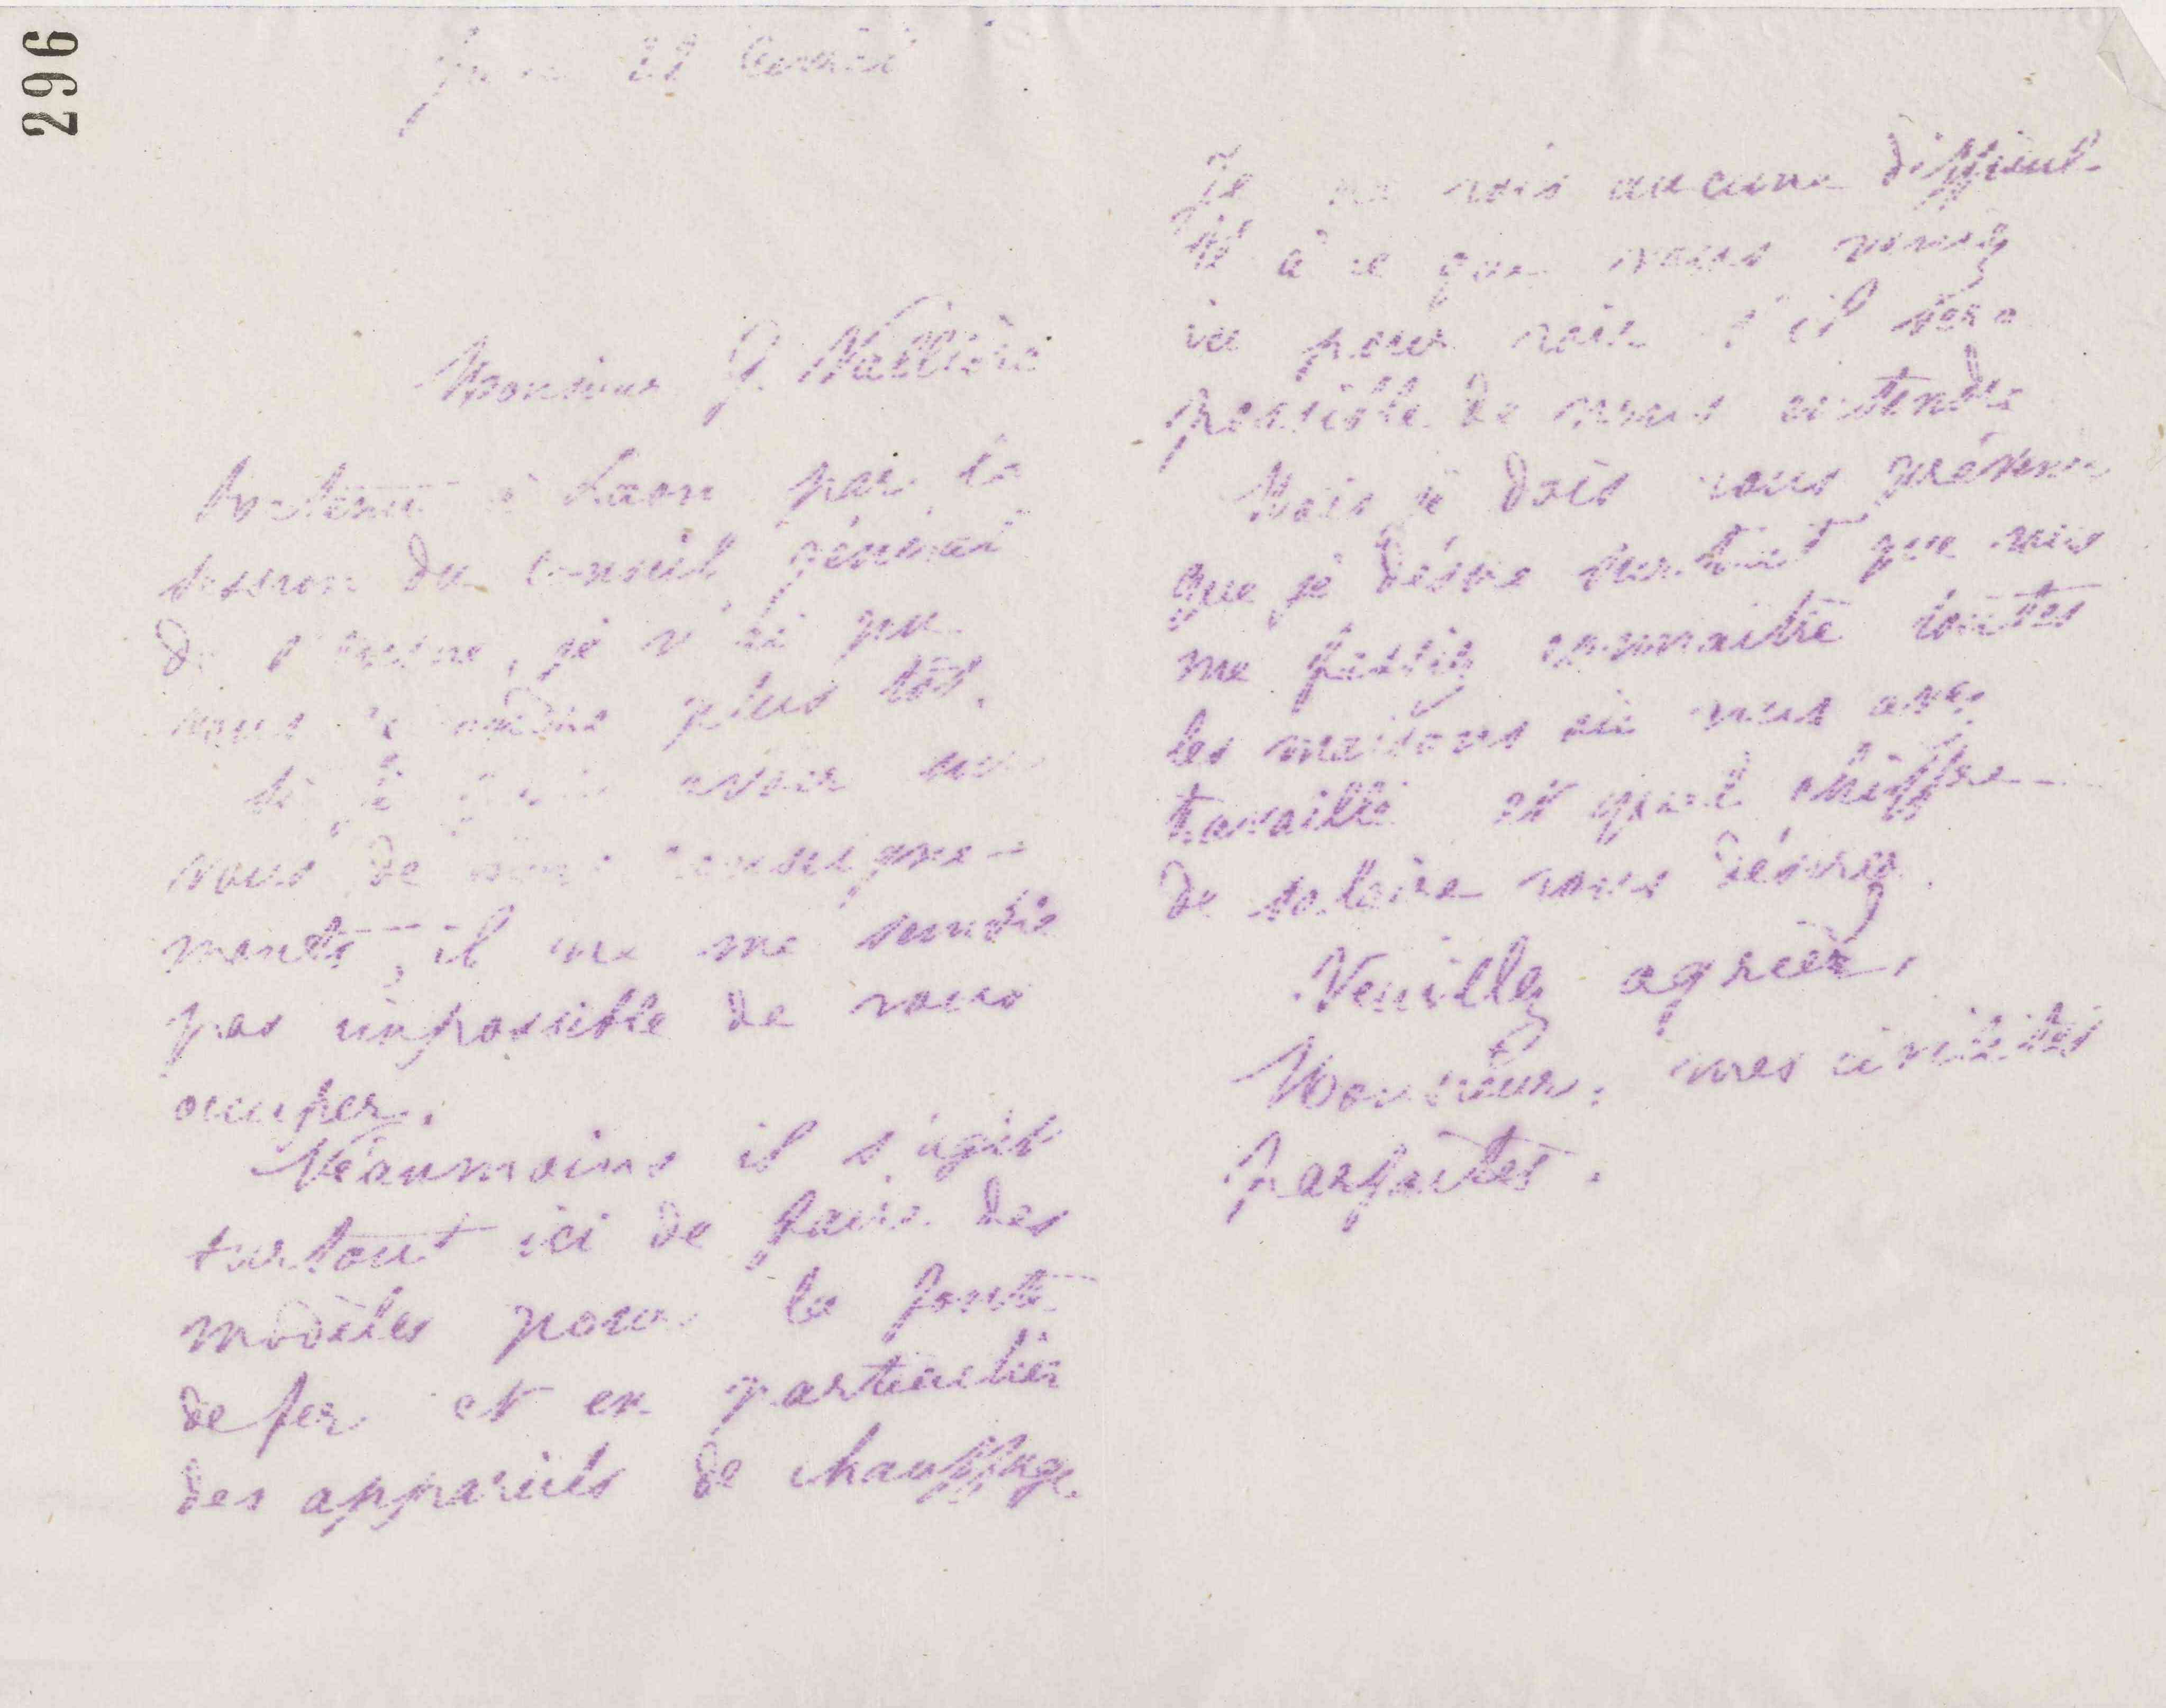 296
22
Monsieur G.
Retenu à Laon par la
session du Conseil général
de l'Aisne, je n'ai pu
vous répondre plus tôt.
Si je puis avoir sur
vous de bons renseigne-
ments, il ne me semble
pas impossible de vous
occuper.
Néanmoins il s'agit
surtout ici de faire des
modèles pour la fonte
de fer et en particulier
des appareils de chauffage.
Je ne vois aucune difficul-
té à ce que vous veniez
ici pour voir s'il sera
possible de nous entendre
Mais je dois vous prévenir
que je désire surtout que vous
me fassiez connaître toutes
les maisons où vous avez
travaillé et quel chiffre
de salaire vous désirez.
Veuillez agréer,
Monsieur, mes civilités
parfaites.